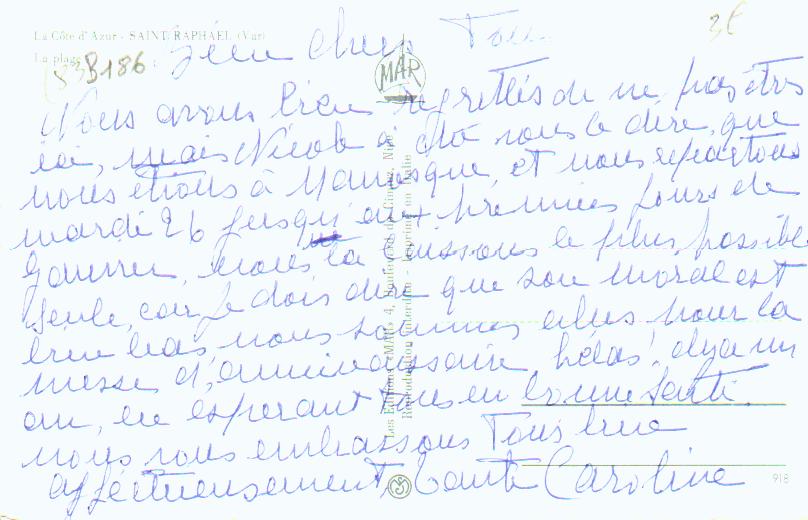 La Côte d'Azur - SAINT-RAPHAEL (Var)
La plage
B186
3€
bien chers Tous
MAR
Nous avons bien regrettés de ne pas êtres
ici, mais Nicole a dû vous le dire, que
nous étions à Manosque, et nous repartons
mardi 26 jusqu'aux premiers jours de
Janvier, nous la laissons le plus possible
seule, car je dois dire que son moral est
bien bas nous sommes alles pour la
messe d'anniversaire hélas! déja un
an, en espérant tous en bonne Santé
nous vous embrassons Tous bien
affectueusement, tante Caroline
Les Editions «MAR» 4, Boulevard de Cimiez, Nice
Reproduction Interdite - Imprimé en Italie
918